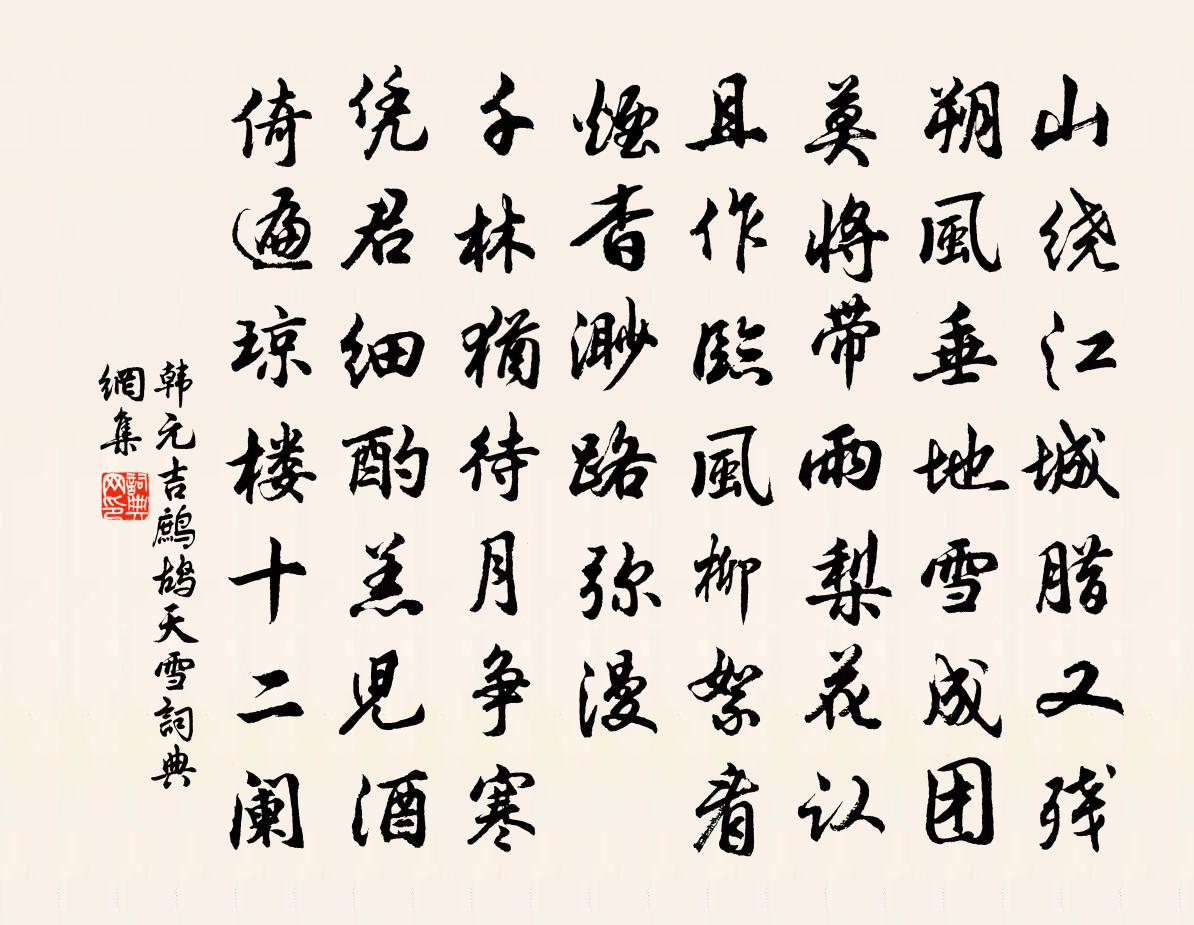 山绕江城腊又残
朔風垂地雪成团
莫将带雨梨花认
且作臨風柳絮看
煙杳渺路弥漫
千林犹待月争寒
凭君细酌羔児酒
倚遍琼楼十二阑
韩元吉鹧鸪天雪詞典
網集
詞典网印